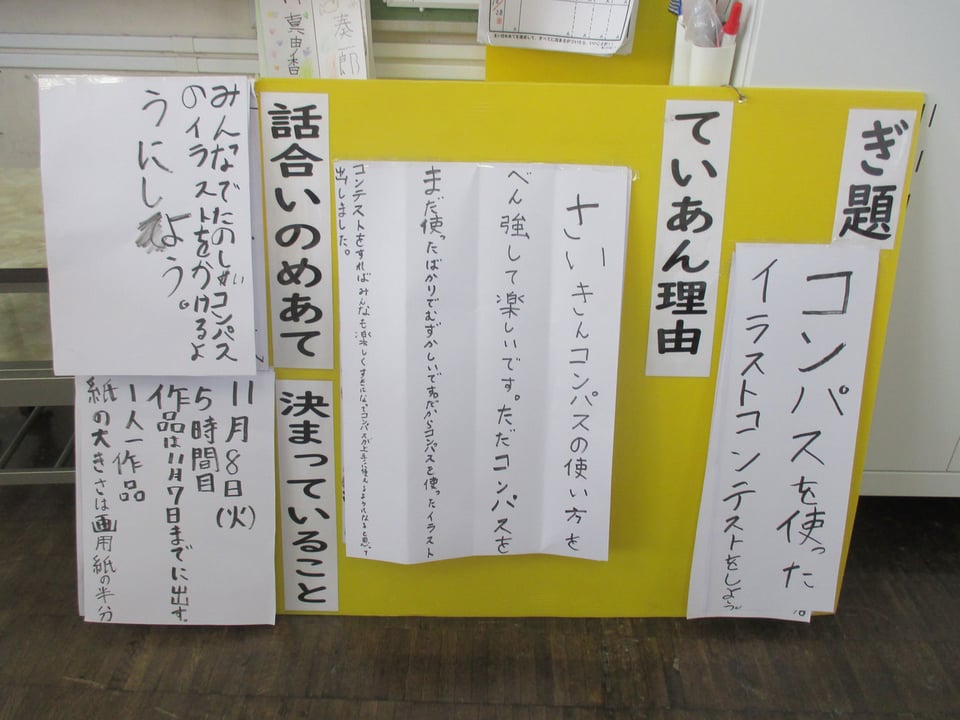 ぎ題
コンパスを使った
イラストコンテストをしよう。
ていあん理由
さいきんコンパスの使い方を
べん強して楽しいです。ただコンパスを
まだ使ったばかりでむずかしいです。だからコンパスを使ったイラスト
コンテストをすればみんなも楽しく
出しました。
話合いのめあて
みんなでたのしいコンパス
のイラストをかけるよ
うにしよう。
決まっていること
11月8日(火)
5時間目
作品は11月7日までに出す。
1人一作品
紙の大きさは画用紙の半分